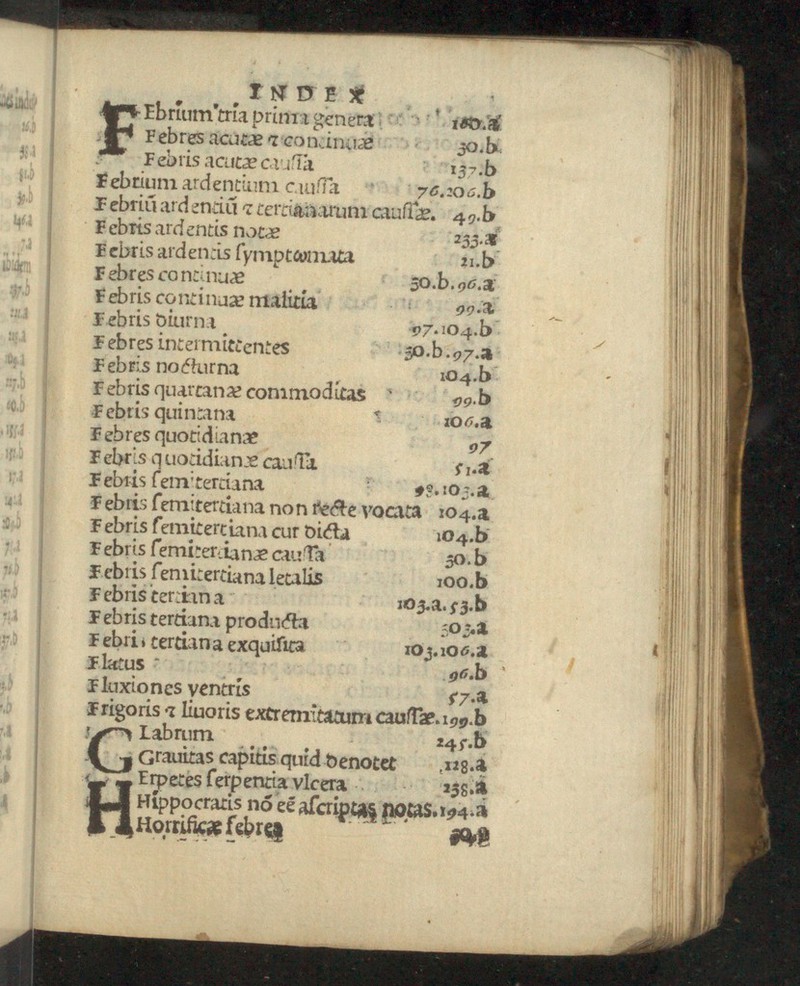 INDEX
FEbrium tria prima genera 180.a
Febres acutæ ⁊ continuæ 30.b.
Febris acutæ cauſſa 137.b
Febrium ardentium cauſſa 76.206.b
Febriū ardentiū ⁊ tertianarum cauſſæ. 49.b
Febris ardentis notæ 233.a
Febris ardentis ſymptomata 21.b
Febres continuæ 30.b.96.a
Febris continuæ malitia 99.a
Febris diurna 97.104.b
Febres intermittentes 30.b.97.a
Febris nocturna 104.b
Febris quartanæ commoditas 99.b
Febris quintana 106.a
Febres quotidianæ 97
Febris quotidianæ cauſſa 51.a
Febris ſemitertiana 98.103.a
Febris ſemitertiana non recte vocata 104.a
Febris ſemitertiana cur dicta 104.b
Febris ſemitertianæ cauſſa 50.b
Febris ſemitertiana letalis 100.b
Febris tertiana 103.a.53.b
Febris tertiana producta 303.a
Febris tertiana exquiſita 103.106.a
Flatus 96.b
Fluxiones ventris 57.a
Frigoris ⁊ liuoris extremitatum cauſſæ. 199.b
GLabrum 245.b
Grauitas capitis quid denotet 128.a
HErpetes ſerpentia vlcera 238.a
Hippocratis nō eē aſcriptas notas. 194.a
Horrificæ febres